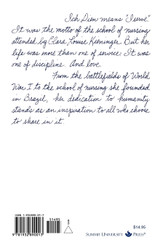 Ich Dien means "I serve"
It was the motto of the school of nursing
attended by Clara Louise Kieninger. But her
life was more than one of service. It was
one of discipline. And love.
From the battlefields of World
War I to the school of nursing she founded
in Brazil, her dedication to humanity
stands as an inspiration to all who choose
to share in it.
$14.95
PRESS